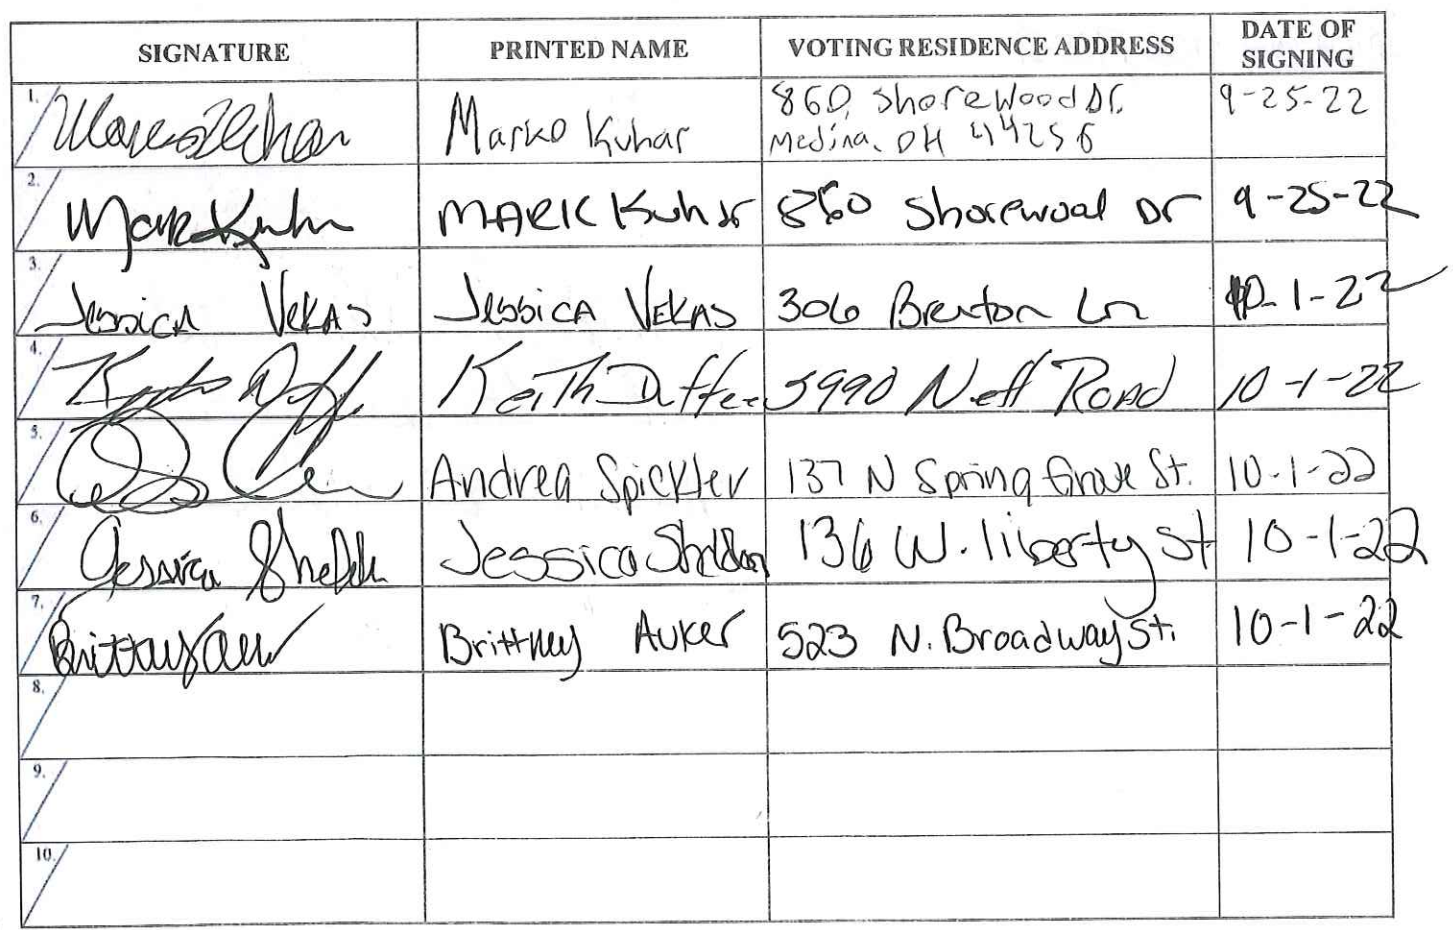 SIGNATURE PRINTED NAME VOTING RESIDENCE ADDRESS DATE OF SIGNING
1. Marko Kuhar 860 Shorewood Dr. 9-25-22
Medina, OH 44256
2. Mark Kuhar MARK Kuhar 860 Shorewood Dr 9-25-22
3. Jessica Vekas Jessica Vekas 306 Brenton Ln 10-1-22
4. Keith Duffee 5990 Neff Road 10-1-22
5. Andrea Spickler 137 N Spring Grove St. 10-1-22
6. Jessica Sheldon Jessica Sheldon 136 W. liberty St 10-1-22
7. Brittney Auker 523 N. Broadway St. 10-1-22
8.
9.
10.